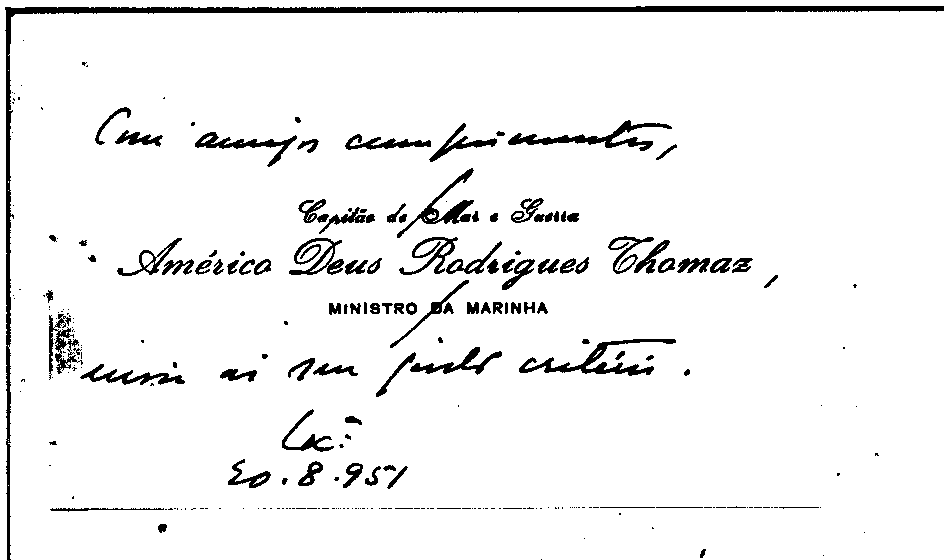 Com amigos cumprimentos,
Capitão de Mar e Guerra
Américo Deus Rodrigues Thomaz,
MINISTRO DA MARINHA
seu justo critério.
20.8.951